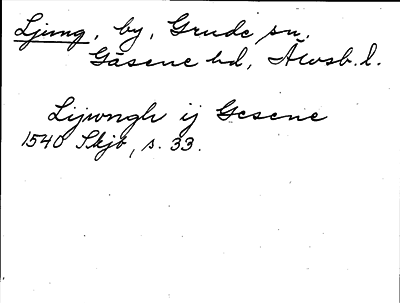 Ljung, by, Grude sn.
Gäsene hd, Älvsb. l.
Lijwngh ij Gesene
1540 Skjb, s. 33.